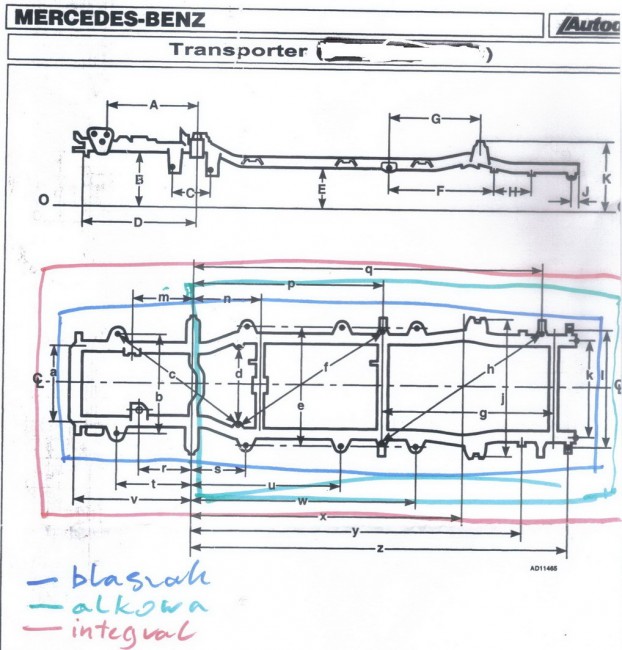 MERCEDES-BENZ
Transporter (
)
A
G
B
C
E
F
H
J
K
O
D
q
p
m
n
a
c
b
d
f
e
h
j
g
k
l
r
s
t
u
v
w
x
y
z
AD11465
blaszak
alkowa
integral